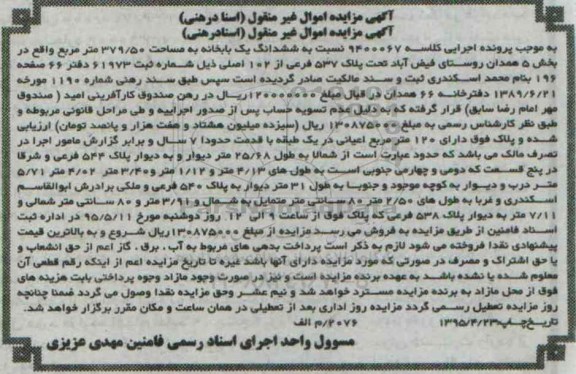 آگهی مزایده اموال غیر منقول (اسنا درهنی)
آگهی مزایده اموال غیر منقول (اسنادرهنی)
به موجب پرونده اجرایی کلاسه ۹۴۰۰۰۶۷ نسبت به ششدانگ یک بابخانه به مساحت ۳۷۹/۵۰ متر مربع واقع در
بخش ۵ همدان روستای فیض آباد تحت پلاک ۵۳۷ فرعی از ۱۰۲ اصلی ذیل شماره ثبت ۶۱۹۷۳ دفتر ۶۶ صفحه
۱۹۶ بنام محمد اسکندری ثبت و سند مالکیت صادر گردیده است سپس طبق سند رهنی شماره ۱۱۹۰ مورخه
۱۳۸۹/۶/۲۱ دفترخانه ۶۶ همدان در قبال مبلغ ۱۲۰۰۰۰۰۰۰ ریال در رهن صندوق کارآفرینی امید ( صندوق
مهر امام رضا سابق) قرار گرفته که به دلیل عدم تسویه حساب پس از صدور اجراییه و طی مراحل قانونی مربوطه و
طبق نظر کارشناس رسمی به مبلغ ۱۳۰۸۷۵۰۰۰ ریال (سیزده میلیون هشتاد و هفت هزار و پانصد تومان) ارزیابی
شده و پلاک فوق دارای ۱۲۰ متر مربع اعیانی در یک طبقه با قدمت حدودا ۷ سال و برابر گزارش مامور اجرا در
تصرف مالک می باشد که حدود عبارت است از شمالا به طول ۲۵/۶۸ متر دیوار و به دیوار پلاک ۵۴۴ فرعی و شرقا
در پنج قسمت که دومی و چهارمی جنوبی است به طول های ۴/۱۳ متر و ۱/۱۲ متر و ۳/۴۰ متر ۴/۰۲ متر ۵/۷۱
متر درب و دیوار به کوچه موجود و جنوبا به طول ۳۱ متر دیوار به پلاک ۵۴۰ فرعی و ملکی برادرش ابوالقاسم
اسکندری و غربا به طول های ۲/۵۰ متر و ۸۰ سانتی متر متمایل به شمال و ۳/۹۱ متر و ۸۰ سانتی متر شمالی و
۷/۱۱ متر به دیوار پلاک ۵۳۸ فرعی . پلاک فوق از ساعت ۹ الی ۱۲ روز دوشنبه مورخ ۹۵/۵/۱۱ در اداره ثبت
اسناد فامنین از طریق مزایده به فروش می رسد مزایده از مبلغ ۱۳۰۸۷۵۰۰۰ ریال شروع و به بالاترین قیمت
پیشنهادی نقدا فروخته می شود لازم به ذکر است پرداخت بدهی های مربوط به آب . برق . گاز اعم از حق انشعاب و
یا حق اشتراک و مصرف در صورتی که مورد مزایده دارای آنها باشد غیره تا تاریخ مزایده اعم از اینکه رقم قطعی آن
معلوم شده یا نشده باشد به عهده برنده مزایده است و نیز در صورت وجود مازاد وجوه پرداختی بابت هزینه های
فوق از محل مازاد به برنده مزایده مسترد خواهد شد و نیم عشر وحق مزایده نقدا وصول می گردد ضمنا چنانچه
روز مزایده تعطیل رسمی گردد مزایده روز اداری بعد از تعطیلی در همان ساعت و مکان مقرر برگزار خواهد شد.
تاریخ چاپ:۱۳۹۵/۴/۲۳ ۲۰۷۶/م الف
مسوول واحد اجرای اسناد رسمی فامنین مهدی عزیزی